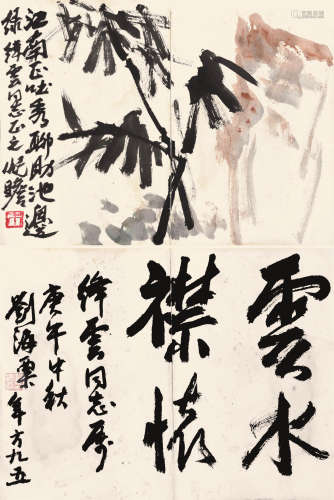 江南正吐秀聊財池邊
綠绛雲同志正之 倪瞻
雲水
襟懷
绛雲同志属
庚午中秋
劉海粟年方九五